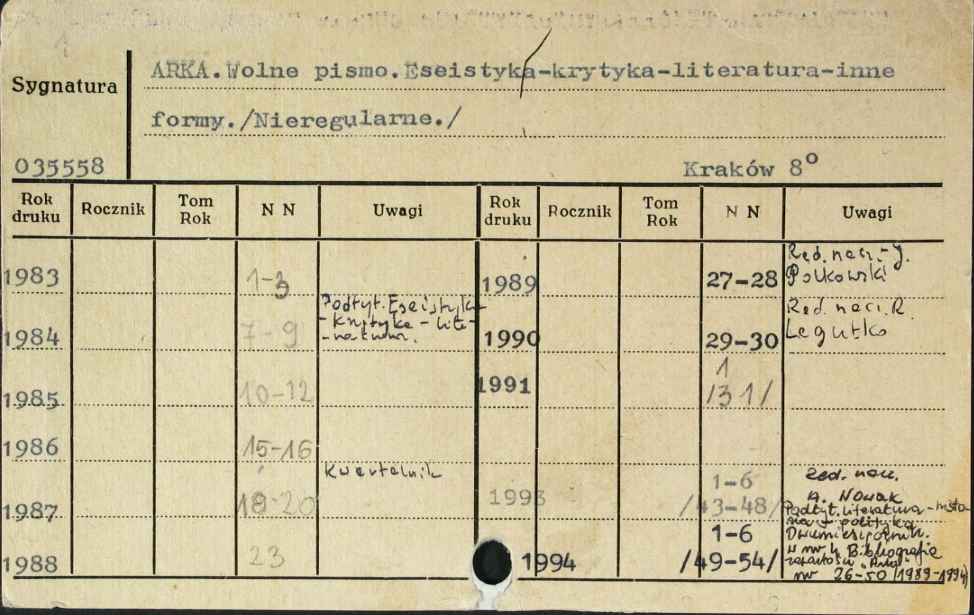 ARKA.Wolne pismo.Eseistyka-krytyka-literatura-inne
Sygnatura
formy./Nieregularne./
035558 Kraków 8°
Rok druku Rocznik Tom Rok N N Uwagi Rok druku Rocznik Tom Rok N N Uwagi
1983 1-3 1989 27-28 Red. nacz. - J. Polkowski
1984 7-9 Podtyt. Eseistyka - krytyka - lite- -ratura. 1990 29-30 Red. nacz. R. Legutko
1985 10-12 1991 1 /31/
1986 15-16
1987 18-20 Kwartalnik 1993 1-6 /43-48/ Red. nacz. A. Nowak
Podtyt. literatura - histo- ria - polityka
Dwumiesięcznik.
1988 23 1994 1-6 /49-54/ w nr Bibliografia zawartości "Arki"
nr 26-50 /1989-1994/